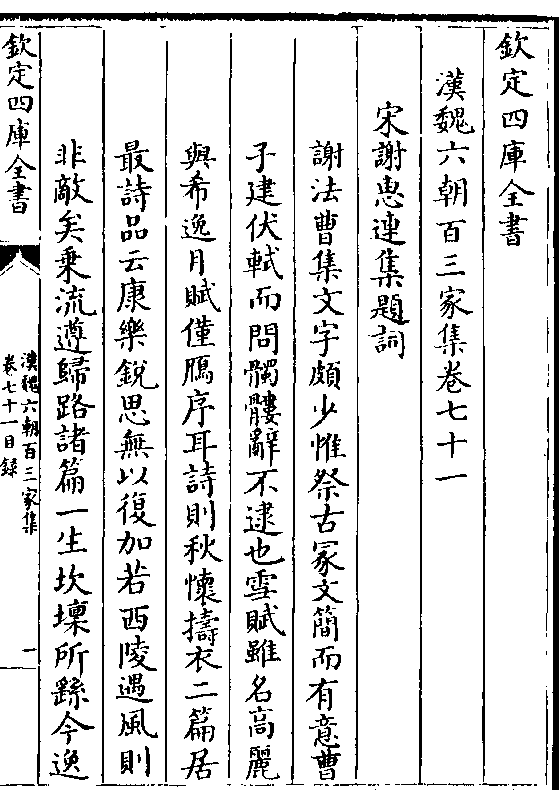 欽定四庫全書
漢魏六朝百三家集卷七十一
宋謝惠連集題詞
謝法曹集文字頗少惟祭古冢文簡而有意曹
子建伏軾而問髑髏辭不逮也雪賦雖名高麗
與希逸月賦僅鴈序耳詩則秋懷擣衣二篇居
最詩品云康樂銳思無以復加若西陵遇風則
非敵矣乗流遵歸路諸篇一生坎壈所繇今逸
欽定四庫全書
漢魏六朝百三家集
卷七十一目録
一